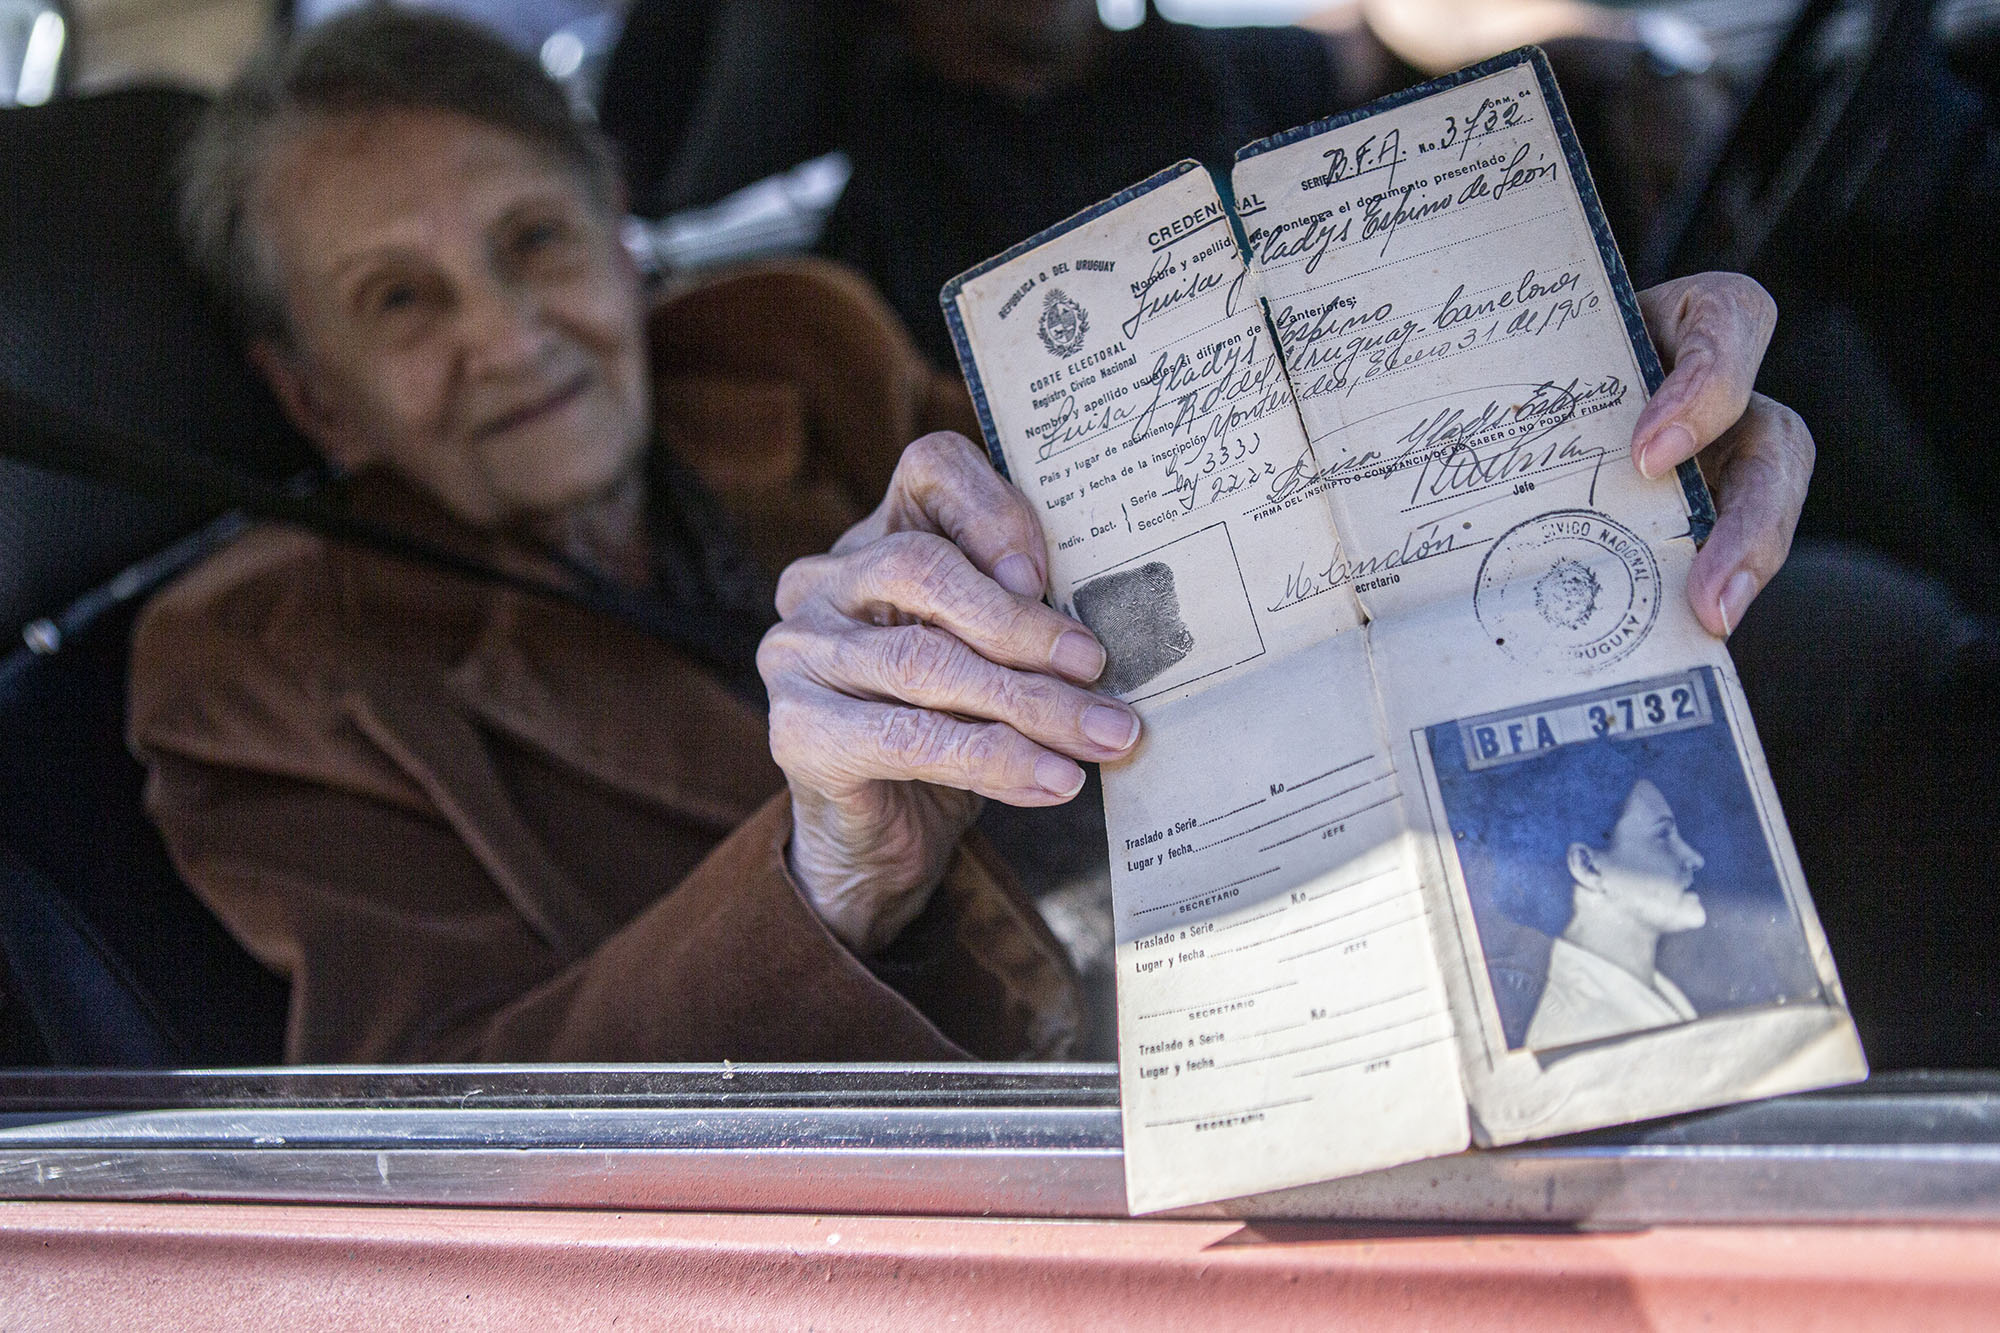 FORM. 64
SERIE B.F.A. N.o 3732
REPUBLICA O. DEL URUGUAY
CORTE ELECTORAL
Registro Cívico Nacional
CREDENCIAL
Nombre y apellido que contenga el documento presentado
Luisa Gladys Espino de León
Nombre y apellido usuales si difieren de anteriores:
Luisa Gladys Espino
País y lugar de nacimiento R.O. del Uruguay-Canelones
Lugar y fecha de la inscripción Montevideo, Enero 31 de 1950
Indiv. Dact. Serie 3333
Sección 2222
Luisa Gladys Espino
FIRMA DEL INSCRIPTO O CONSTANCIA DE NO SABER O NO PODER FIRMAR
Jefe
M. Cendón
ecretario
CIVICO NACIONAL
URUGUAY
BFA 3732
Traslado a Serie N.o
Lugar y fecha
JEFE
SECRETARIO
Traslado a Serie N.o
Lugar y fecha
JEFE
SECRETARIO
Traslado a Serie N.o
Lugar y fecha
JEFE
SECRETARIO